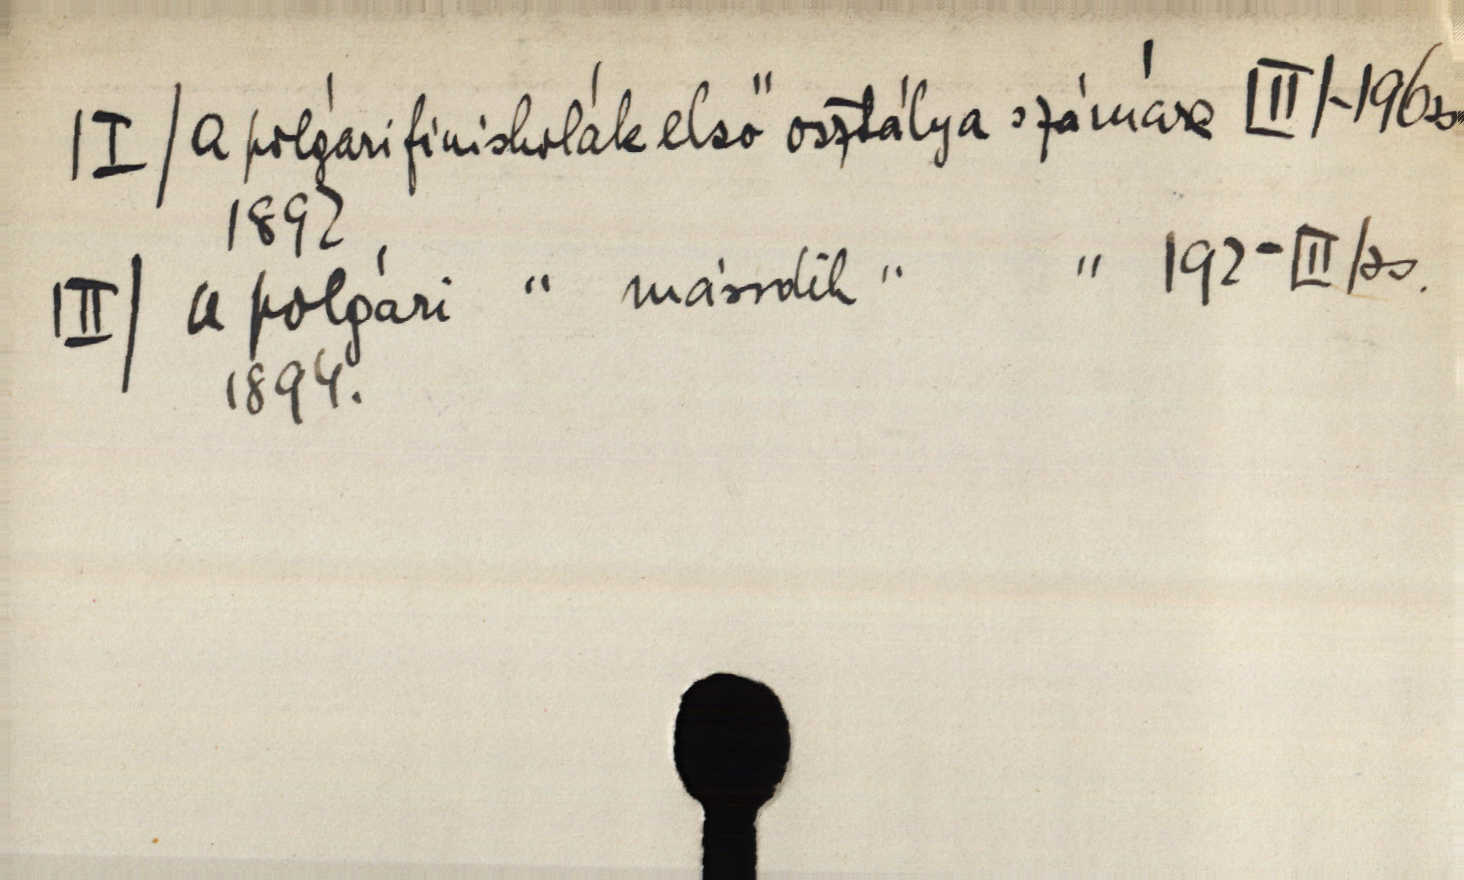 |I/ a polgári finiskolák első osztálya számára III/-196 zs
1892
|II/ a polgári " második " " 192-III/zs.
1894.